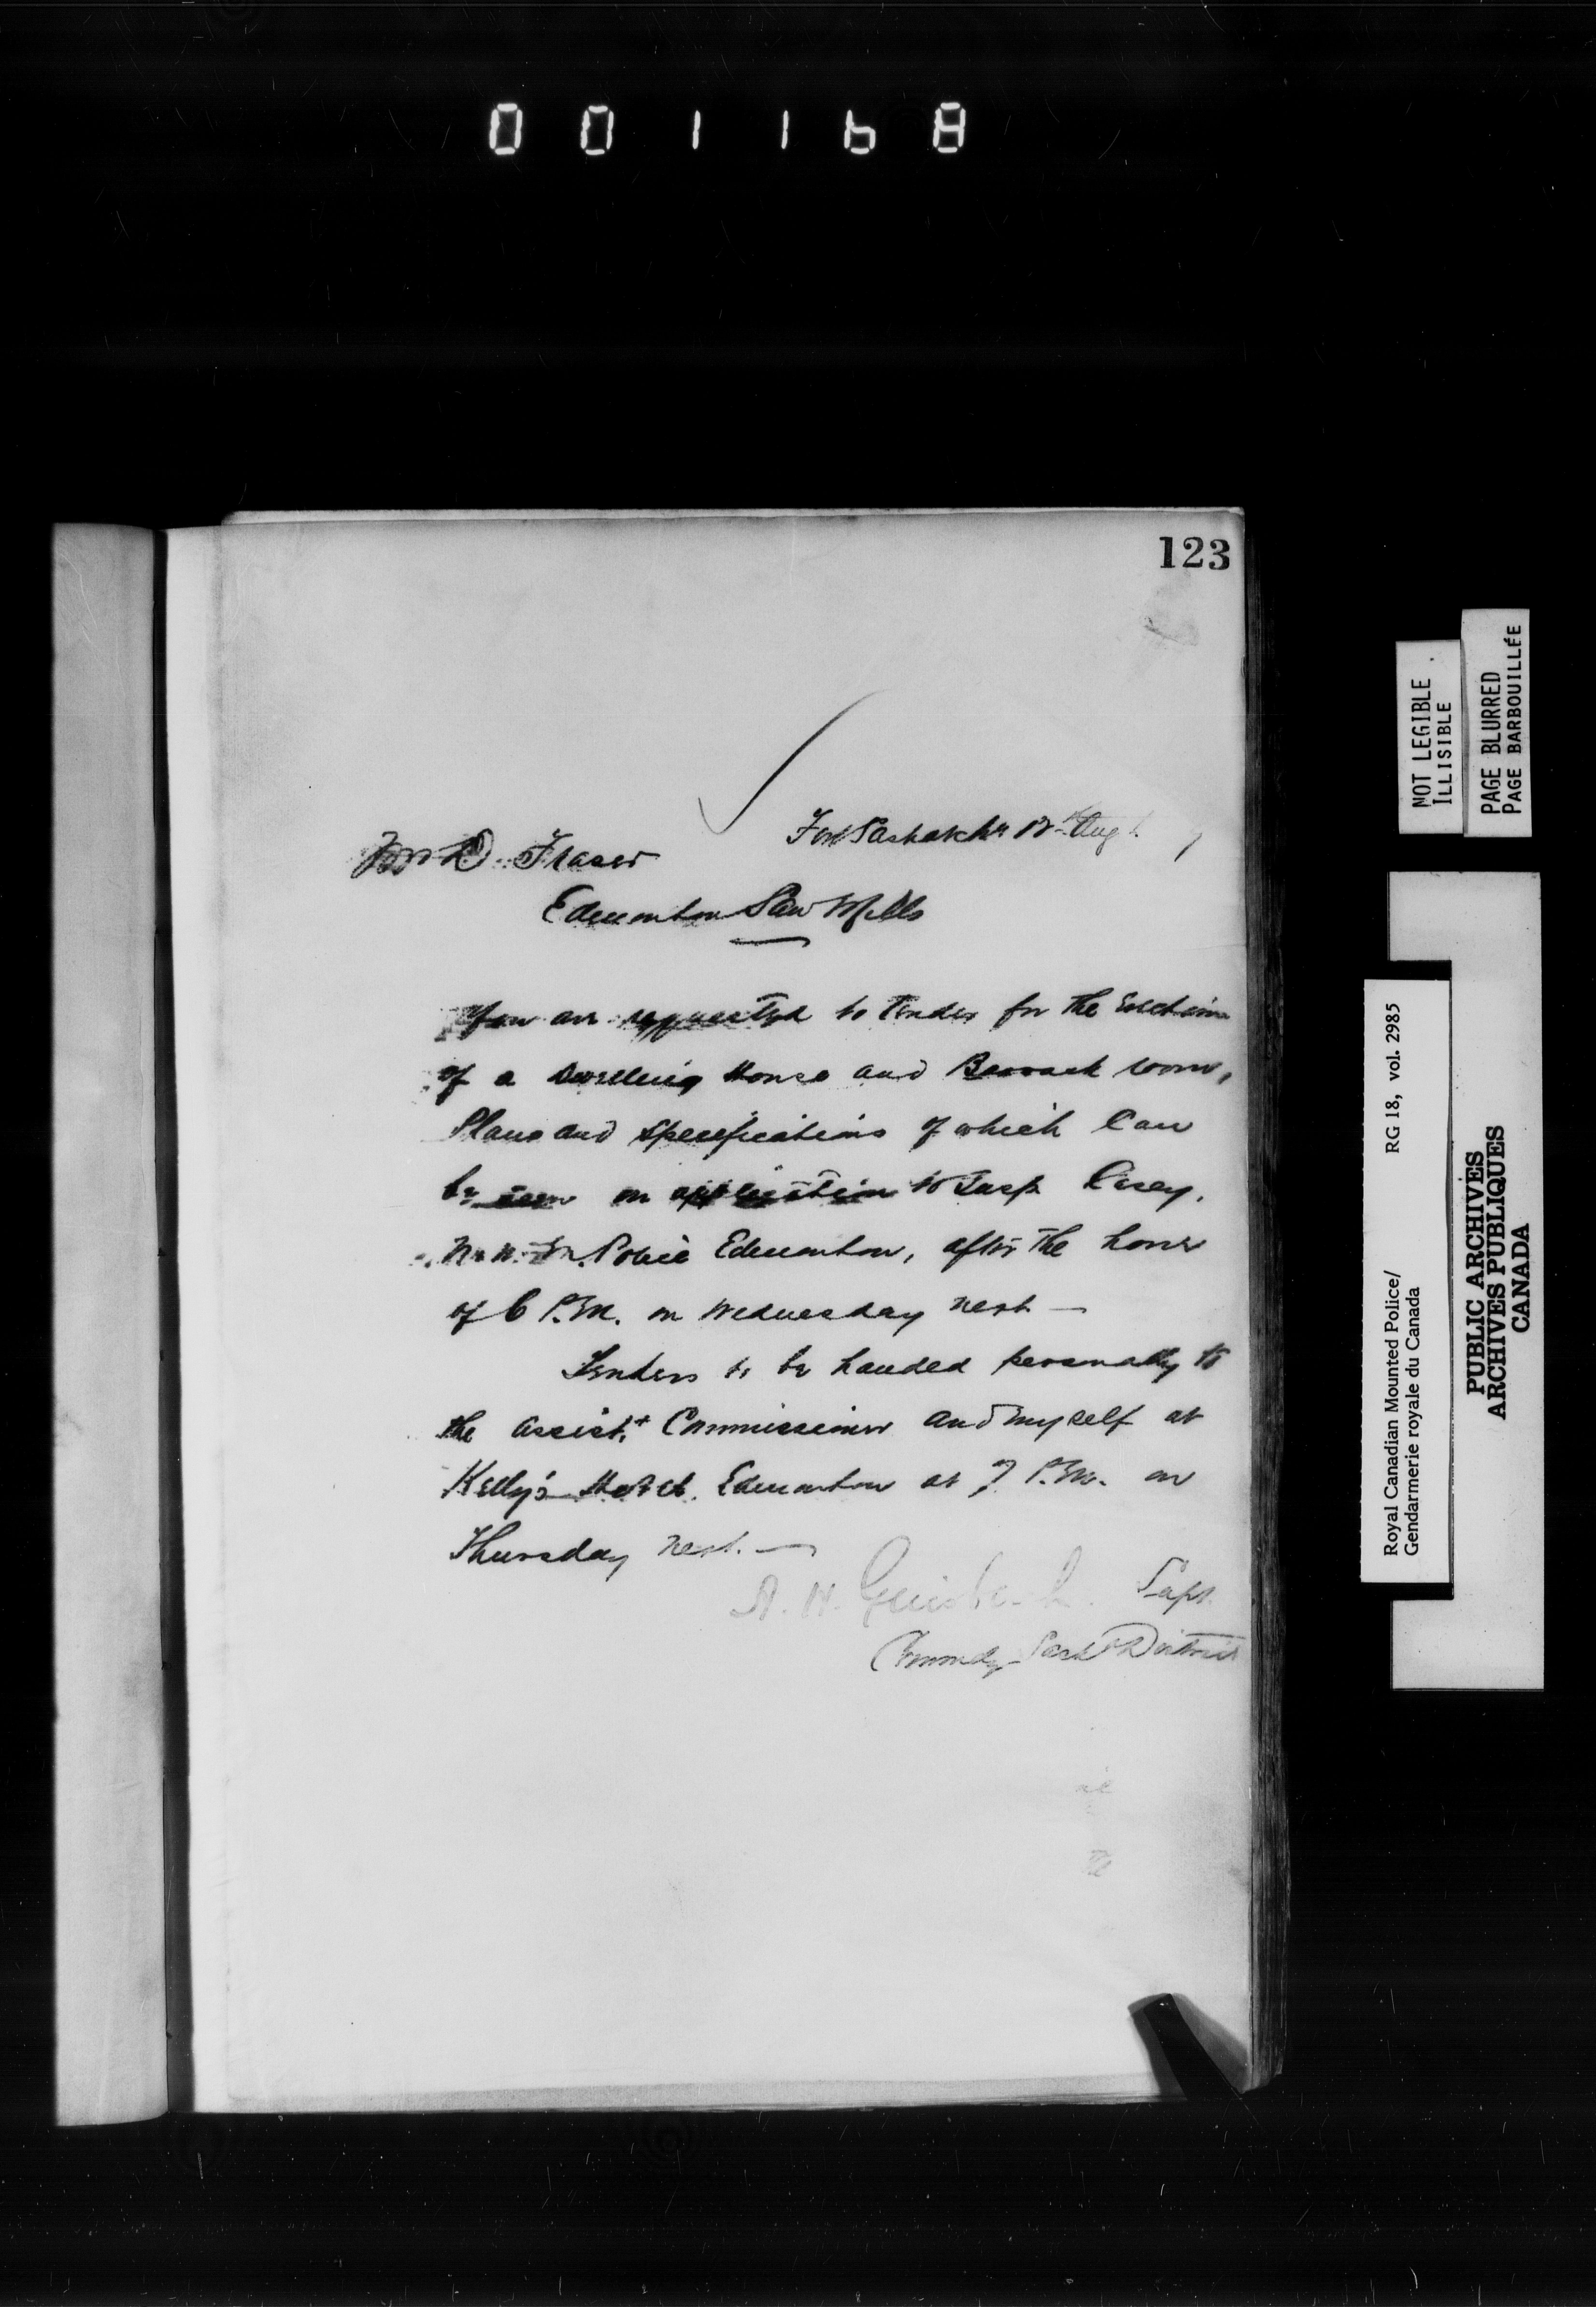 001168
123
Fort Saskatchn 12th Augt
Mr D. Fraser
Edmonton Saw Mills
You are requested to Tender for the Erection
of a Dwelling House and Barrack room,
Plans and Specifications of which Can
be seen on application to Insp Casey,
N. W. M. Police Edmonton, after the hour
of 6 P.M. on Wednesday next —
Tenders to be handed personally to
the Assist.t Commissioner and myself at
Kelly's Hotel. Edmonton at 7 P.M. on
Thursday next. —
A. H. Griesbach. Supt.
Commdg Sask District
NOT LEGIBLE
ILLISIBLE
PAGE BLURRED
PAGE BARBOUILLÉE
Royal Canadian Mounted Police/ RG 18, vol. 2985
Gendarmerie royale du Canada
PUBLIC ARCHIVES
ARCHIVES PUBLIQUES
CANADA